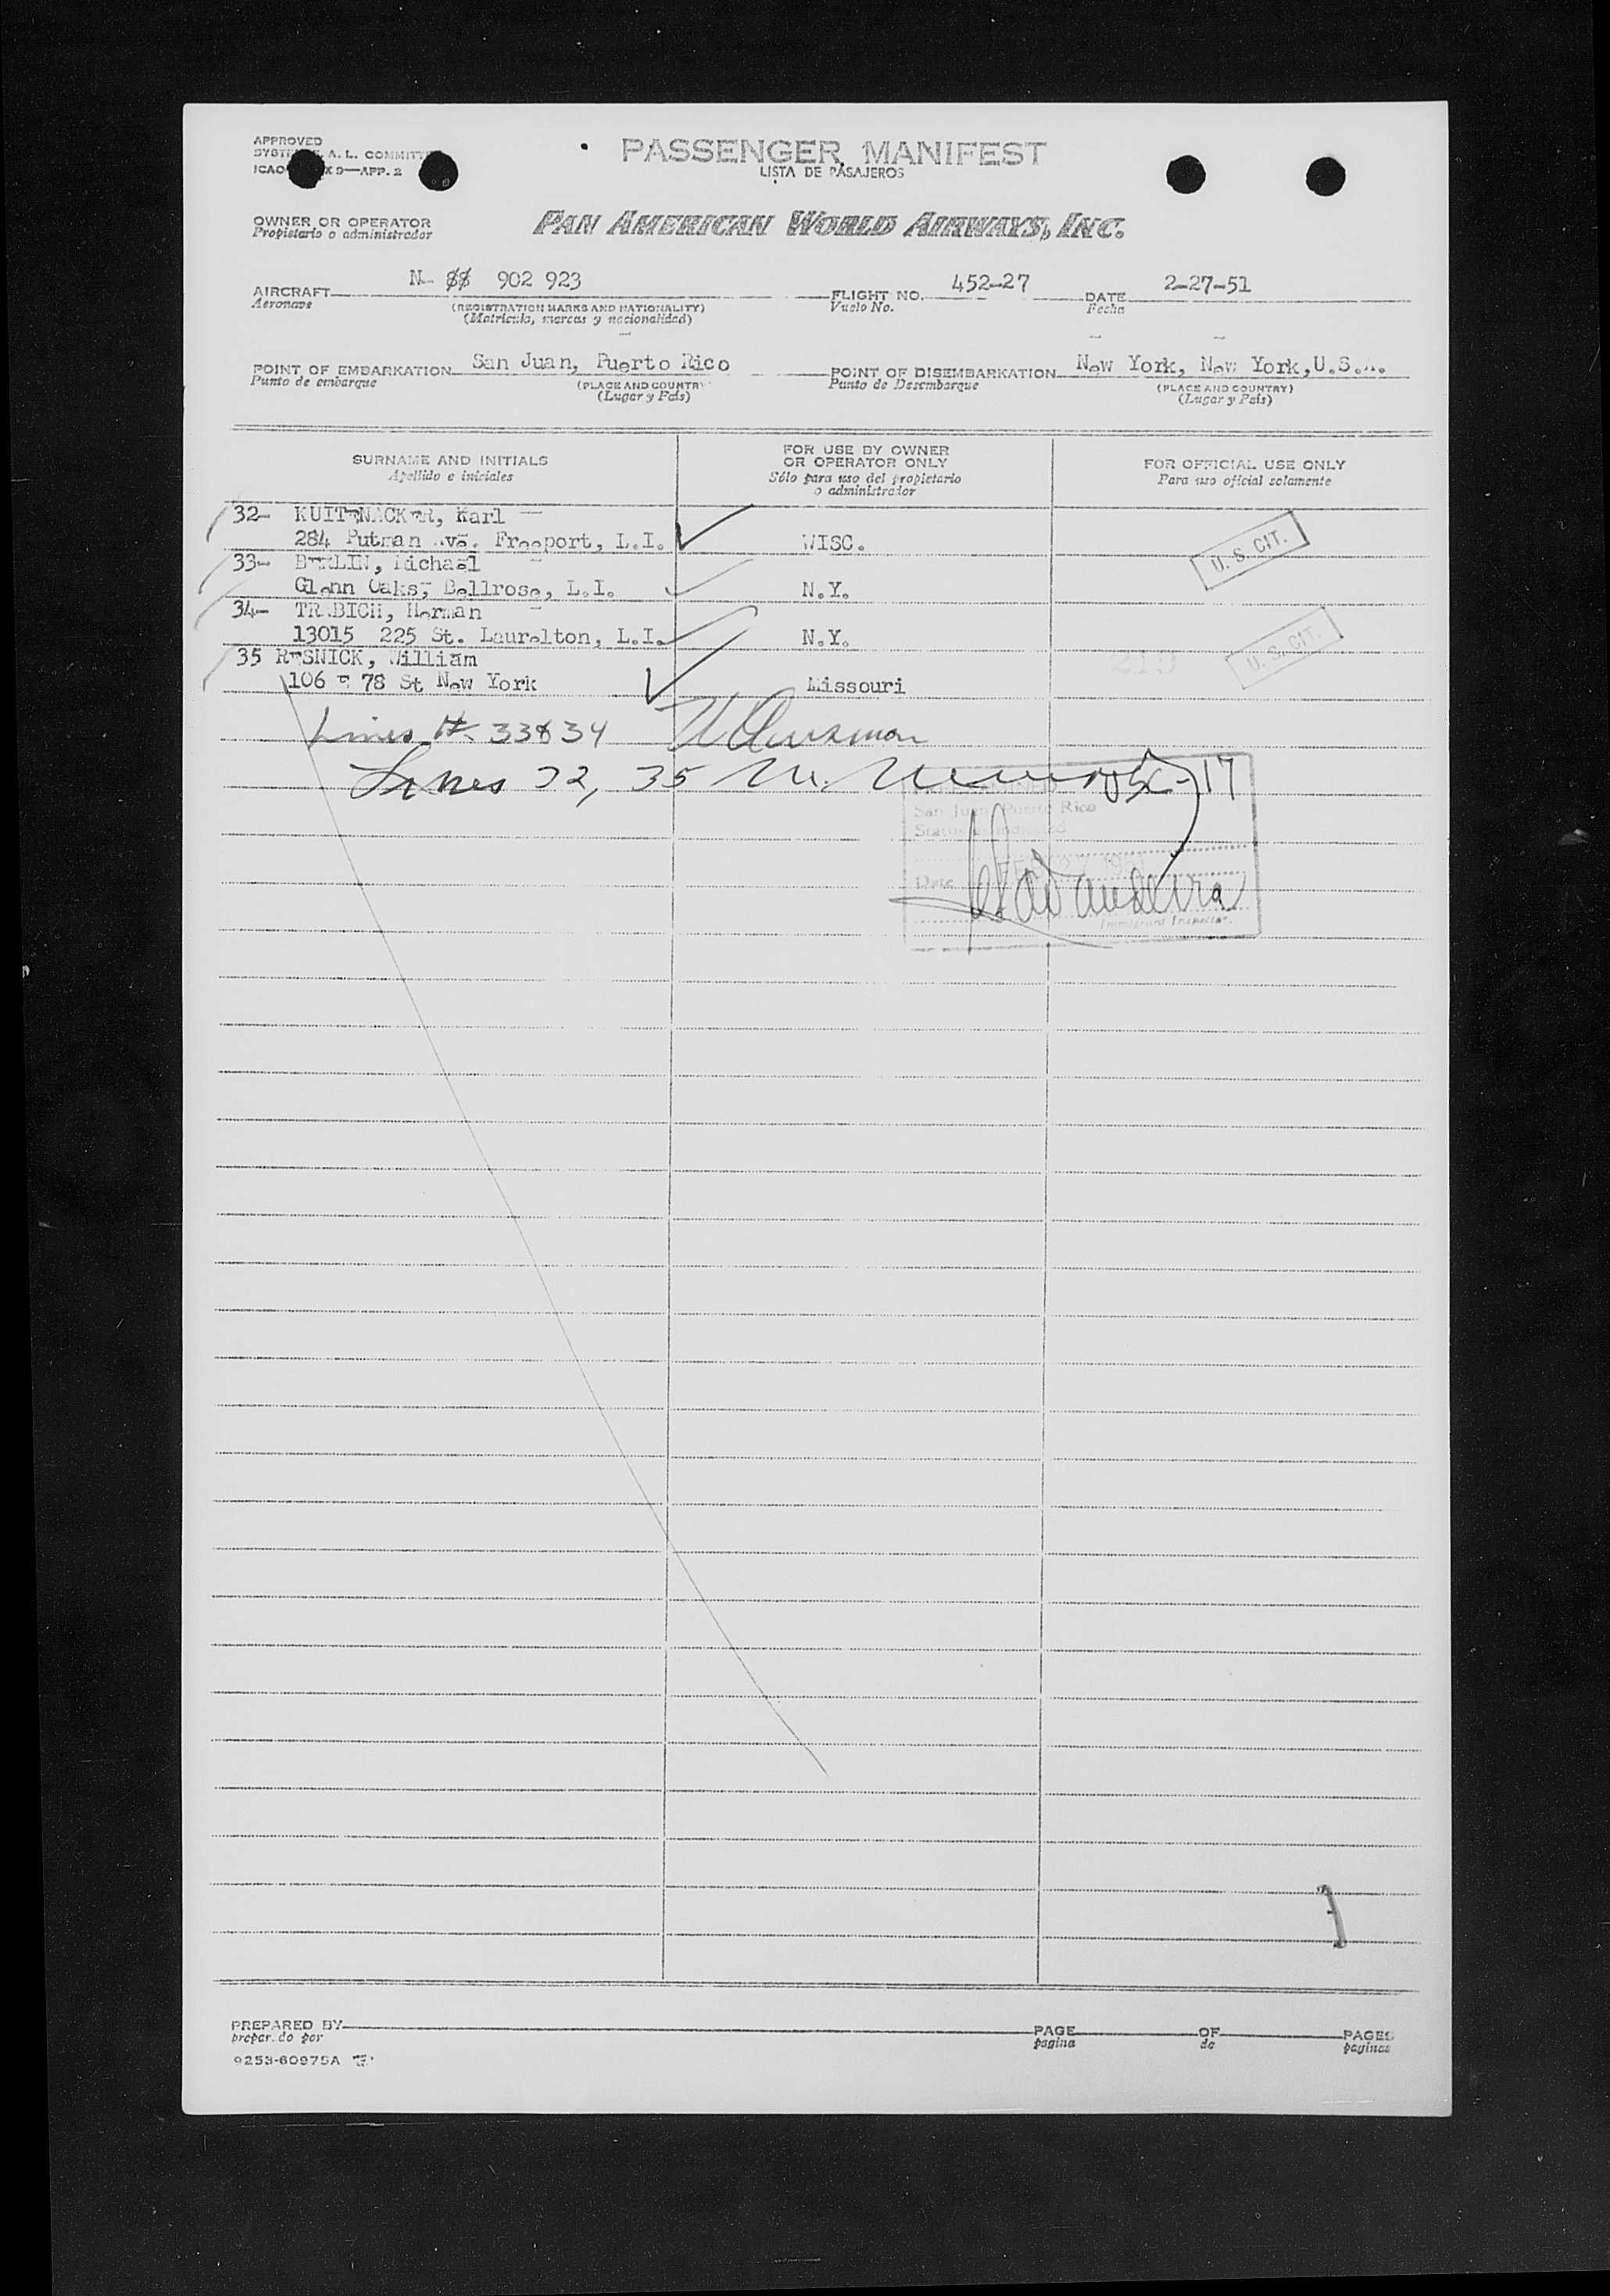 APPROVED
A. L.
PASSENGER MANIFEST
ICAO 9—APP. 2
LISTA DE PASAJEROS
OWNER OR OPERATOR
Propietario o administrador
PAN AMERICAN WORLD AIRWAYS, INC.
AIRCRAFT N- 902 923 FLIGHT NO. 452-27 DATE 2-27-51
Aeronave (REGISTRATION MARKS AND NATIONALITY) Vuelo No. Fecha
(Matrícula, marcas y nacionalidad)
POINT OF EMBARKATION San Juan, Puerto Rico POINT OF DISEMBARKATION New York, New York, U.S.A.
Punto de embarque (PLACE AND COUNTRY) Punto de Desembarque (PLACE AND COUNTRY)
(Lugar y País) (Lugar y País)
SURNAME AND INITIALS FOR USE BY OWNER OR OPERATOR ONLY FOR OFFICIAL USE ONLY
Apellido e iniciales Sólo para uso del propietario o administrador Para uso oficial solamente
32- KUITENACKER, Karl
284 Putman Ave. Freeport, L.I. WISC. U. S. CIT.
33- Michael
Glenn Oaks, Bellrose, L.I. N.Y.
34- Herman
13015 225 St. Laurelton, L.I. N.Y. U. S. CIT.
35 RESNICK, William
106 E 78 St New York Missouri
Lines # 33&34
Lines 32, 35
San Juan, Puerto Rico
Status as indicated
Date
Immigrant Inspector.
PREPARED BY PAGE OF PAGES
preparado por pagina de paginas
9253-60975A